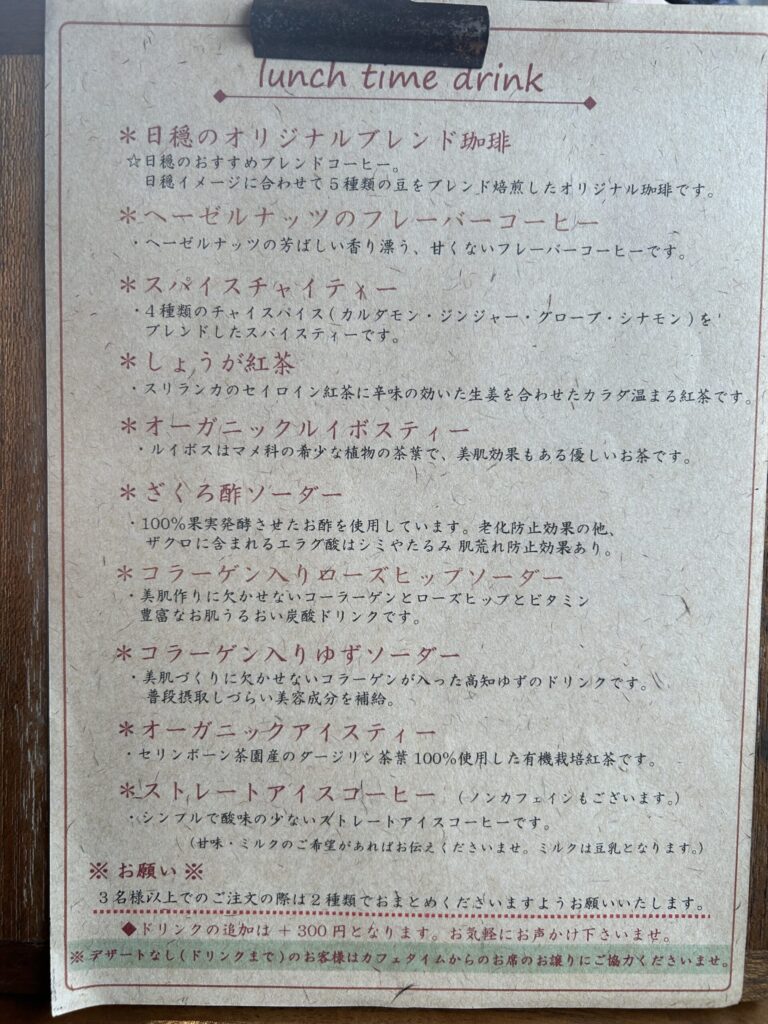 lunch time drink
＊日穏のオリジナルブレンド珈琲
☆日穏のおすすめブレンドコーヒー。
日穏イメージに合わせて５種類の豆をブレンド焙煎したオリジナル珈琲です。
＊ヘーゼルナッツのフレーバーコーヒー
・ヘーゼルナッツの芳ばしい香り漂う、甘くないフレーバーコーヒーです。
＊スパイスチャイティー
・４種類のチャイスパイス(カルダモン・ジンジャー・グローブ・シナモン)を
ブレンドしたスパイスティーです。
＊しょうが紅茶
・スリランカのセイロイン紅茶に辛味の効いた生姜を合わせたカラダ温まる紅茶です。
＊オーガニックルイボスティー
・ルイボスはマメ科の希少な植物の茶葉で、美肌効果もある優しいお茶です。
＊ざくろ酢ソーダー
・100％果実発酵させたお酢を使用しています。老化防止効果の他、
ザクロに含まれるエラグ酸はシミやたるみ 肌荒れ防止効果あり。
＊コラーゲン入りローズヒップソーダー
・美肌作りに欠かせないコーラーゲンとローズヒップとビタミン
豊富なお肌うるおい炭酸ドリンクです。
＊コラーゲン入りゆずソーダー
・美肌づくりに欠かせないコラーゲンが入った高知ゆずのドリンクです。
普段摂取しづらい美容成分を補給。
＊オーガニックアイスティー
・セリンボーン茶園産のダージリン茶葉100％使用した有機栽培紅茶です。
＊ストレートアイスコーヒー （ノンカフェインもございます。）
・シンプルで酸味の少ないストレートアイスコーヒーです。
（甘味・ミルクのご希望があればお伝えくださいませ。ミルクは豆乳となります。）
※ お願い ※
３名様以上でのご注文の際は２種類でおまとめくださいますようお願いいたします。
◆ドリンクの追加は＋300円となります。お気軽にお声かけ下さいませ。
※デザートなし(ドリンクまで)のお客様はカフェタイムからのお席のお譲りにご協力くださいませ。